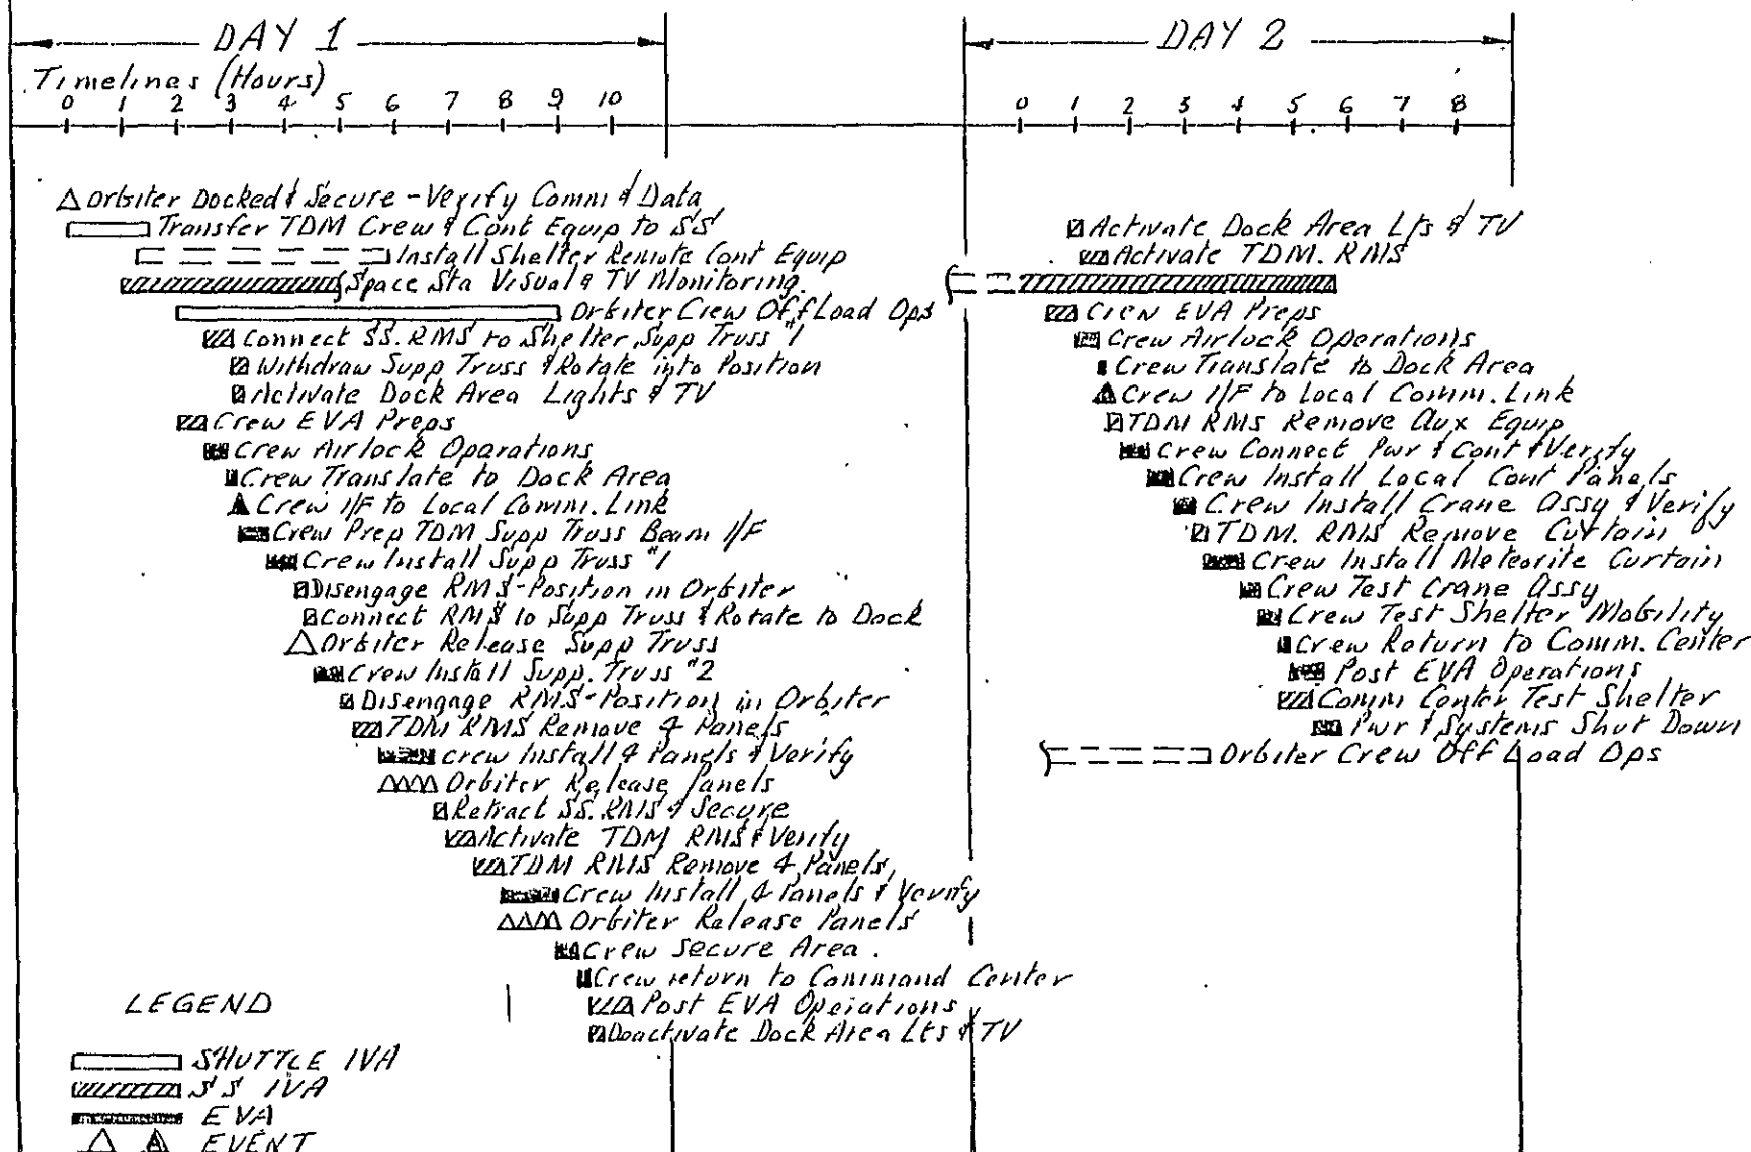 DAY 1
DAY 2
Timelines (Hours)
0 1 2 3 4 5 6 7 8 9 10
0 1 2 3 4 5 6 7 8
Orbiter Docked & Secure - Verify Comm & Data
Transfer TDM Crew & Cont Equip to SS
Install Shelter Remote Cont Equip
Space Sta Visual & TV Monitoring
Orbiter Crew Off Load Ops
Connect SS. RMS to Shelter Supp Truss #1
Withdraw Supp Truss & Rotate into Position
Activate Dock Area Lights & TV
Crew EVA Preps
Crew Airlock Operations
Crew Translate to Dock Area
Crew I/F to Local Comm. Link
Crew Prep TDM Supp Truss Beam I/F
Crew Install Supp Truss #1
Disengage RMS-Position in Orbiter
Connect RMS to Supp Truss & Rotate to Dock
Orbiter Release Supp Truss
Crew Install Supp. Truss #2
Disengage RMS-Position in Orbiter
TDM RMS Remove 4 Panels
Crew Install 4 Panels & Verify
Orbiter Release Panels
Retract SS. RMS & Secure
Activate TDM RMS & Verify
TDM RMS Remove 4 Panels
Crew Install 4 Panels & Verify
Orbiter Release Panels
Crew Secure Area.
Crew return to Command Center
Post EVA Operations
Deactivate Dock Area Lts & TV
Activate Dock Area Lts & TV
Activate TDM. RMS
Crew EVA Preps
Crew Airlock Operations
Crew Translate to Dock Area
Crew I/F to Local Comm. Link
TDM RMS Remove Aux Equip
Crew Connect Pwr & Cont & Verify
Crew Install Local Cont Panels
Crew Install Crane Assy & Verify
TDM. RMS Remove Curtain
Crew Install Meteorite Curtain
Crew Test Crane Assy
Crew Test Shelter Mobility
Crew Return to Comm. Center
Post EVA Operations
Comm Center Test Shelter
Pwr & Systems Shut Down
Orbiter Crew Off Load Ops
LEGEND
SHUTTLE IVA
SS IVA
EVA
EVENT